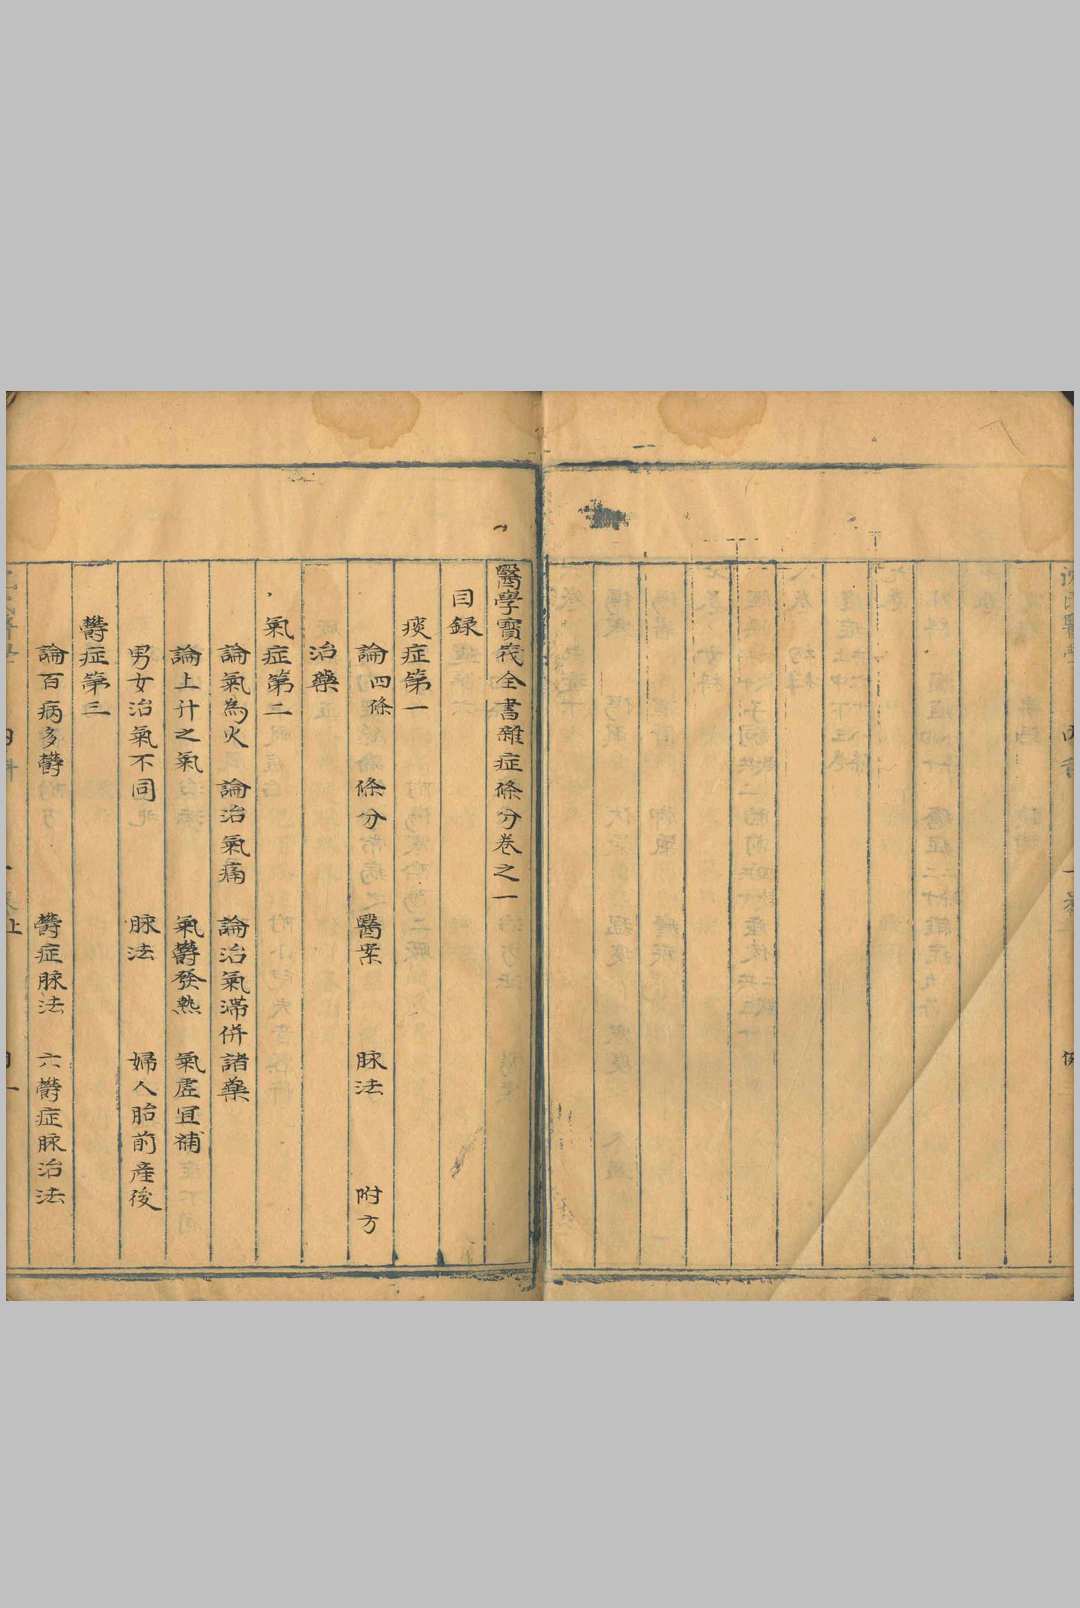 醫學寶筏全書雜症條分卷之一
目録
痰症第一
論四條 條分 醫案 脉法 附方
治藥
氣症第二
論氣為火 論治氣痛 論治氣滯併諸藥
論上升之氣 氣欝發熱 氣虛宜補
男女治氣不同 脉法 婦人胎前產後
欝症第三
論百病多欝 欝症脉法 六欝症脉治法